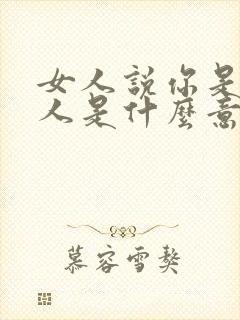 女人説你是
人是什麼意
慕容雪獒